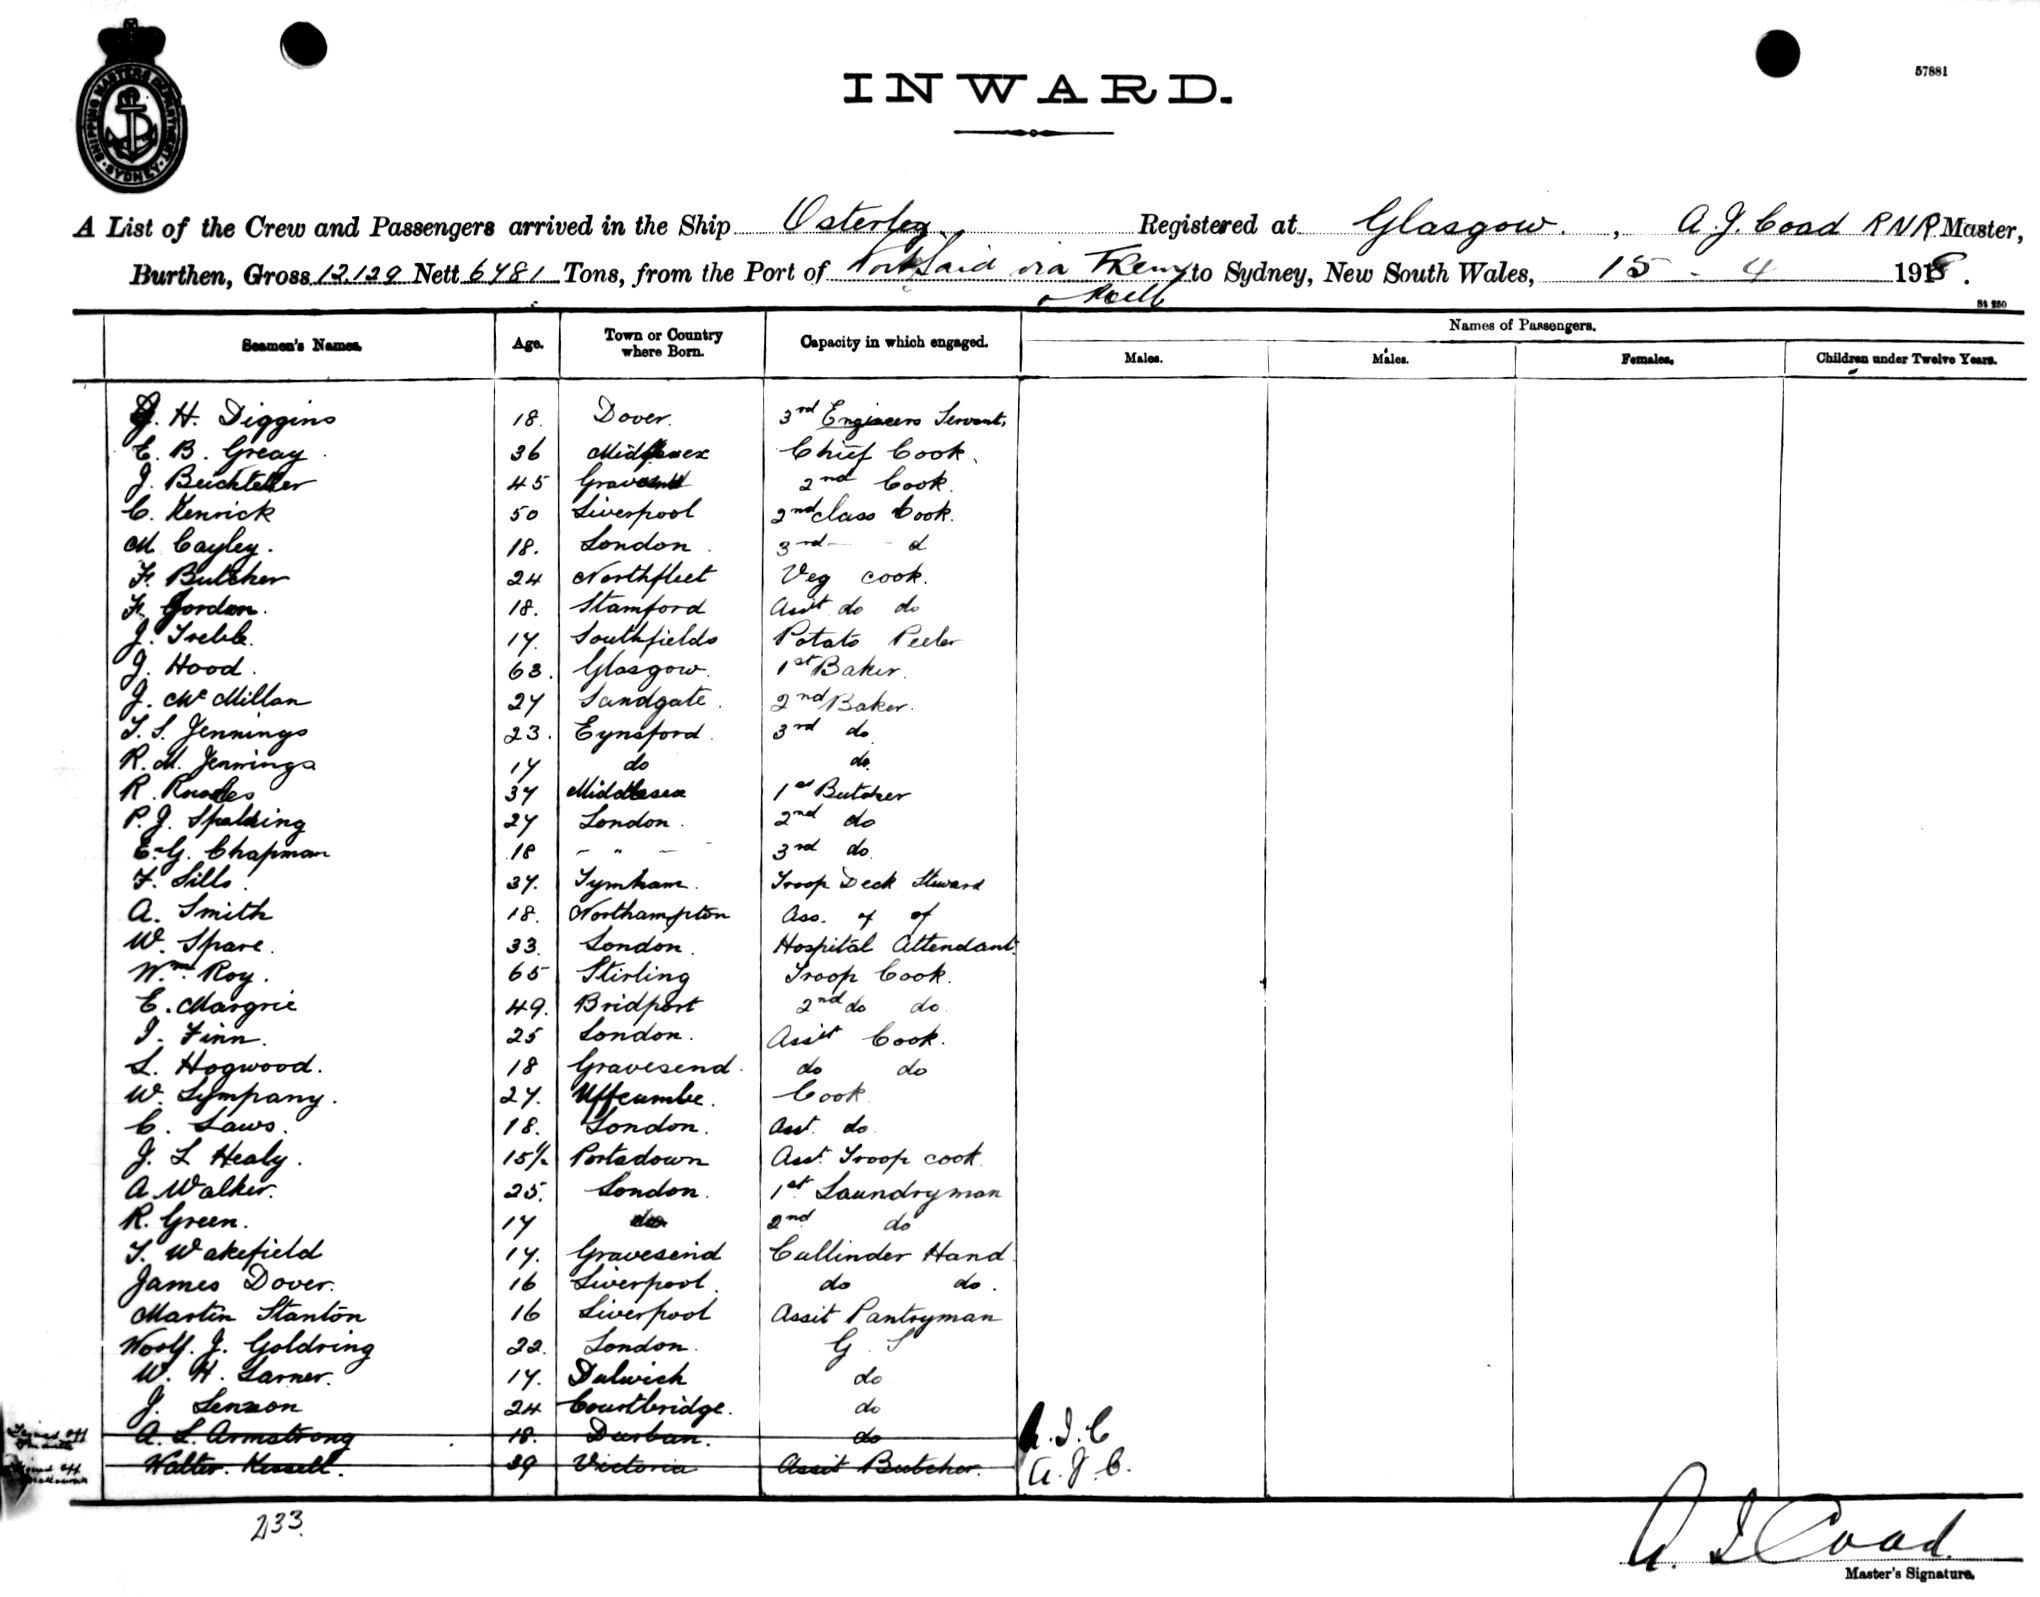 SHIPPING MASTERS DEPARTMENT SYDNEY
57881
INWARD.
A List of the Crew and Passengers arrived in the Ship Osterley Registered at Glasgow, A. J. Coad RNR Master,
Burthen, Gross 12,129 Nett 6481 Tons, from the Port of Port Said via to Sydney, New South Wales, 15 - 4 1918.
St 250
Seamen's Names. Age. Town or Country where Born. Capacity in which engaged. Names of Passengers.
Males. Males. Females. Children under Twelve Years.
J. H. Diggins 18. Dover. 3rd Engineers Servant.
E. B. Greay 36 Middlesex Chief Cook.
J. 45 Gravesend 2nd Cook.
C. Kenrick 50 Liverpool 2nd class Cook.
M. Cayley. 18. London. 3rd - d
F. Butcher 24 Northfleet Veg cook.
F. Gordon. 18. Stamford Assit do do
J. Treble. 17. Southfields Potato Peeler
J. Hood. 63. Glasgow. 1st Baker.
J. McMillan 27 Sandgate. 2nd Baker.
T. S. Jennings 23. Eynsford. 3rd do
R. M. Jennings 17 do do.
R. 37 Middlesex 1st Butcher
P. J. Spalding 27 London. 2nd do
E. G. Chapman 18 - " - 3rd do.
F. Sills. 37. Troop Deck Steward
A. Smith 18. Northampton Ass. of of
W. Spare. 33. London. Hospital Attendant.
Wm. Roy. 65 Stirling Troop Cook.
E. Margrie 49. Bridport 2nd do do
J. Finn. 25 London. Assit Cook.
S. Hogwood. 18 Gravesend. do do
W. Sympany. 27. Uffcumbe. Cook
C. Laws. 18. London. Asst. do
J. L Healy. 15½ Portadown Asst. Troop cook.
A. Walker. 25. London. 1st Laundryman
R. Green. 17 do 2nd do
T. Wakefield 17. Gravesend Cullinder Hand
James Dover. 16 Liverpool. do do.
Martin Stanton 16 Liverpool Assit Pantryman
Woolf. J. Goldring 22. London. G. S
W. H. Larner. 17. Dulwich do
J. Lennon 24 Courtbridge. do
Signed off A. L. Armstrong 18. Durban. do A.J.C
Signed off Walter. Kessell. 39 Victoria Assit Butcher. A.J.C.
233.
A J Coad.
Master's Signature.